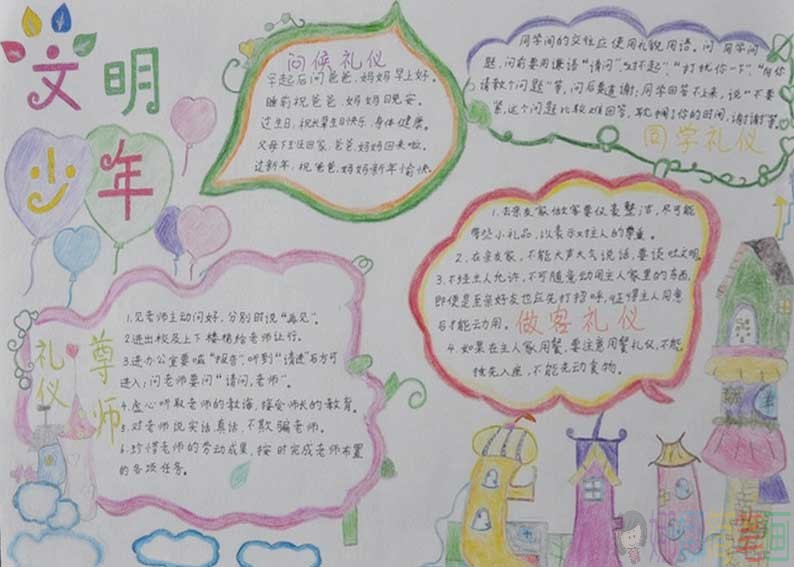 文明
少年
问候礼仪
早起后问爸爸,妈妈早上好。
睡前祝爸爸,妈妈晚安。
过生日,祝长辈生日快乐,身体健康。
父母下班回家,爸爸,妈妈回来啦。
过新年,祝爸爸,妈妈新年愉快。
同学间的交往应使用礼貌用语。问同学问
题,问前要用谦语"请问","对不起","打扰你一下","向你
请教个问题"等,问后要道谢;同学回答不上来,说"不要
紧,这个问题比较难回答,耽搁了你的时间,谢谢"等。
同学礼仪
1.去亲友家做客要仪表整洁,尽可能
带些小礼品,以表示对主人的尊重。
2.在亲友家,不能大声大气说话,要谈吐文明
3.不经主人允许,不可随意动用主人家里的东西,
即使是至亲好友也应先打招呼,征得主人同意
后才能动用。
做客礼仪
4.如果在主人家用餐,要注意用餐礼仪,不能
抢先入座,不能先动食物。
尊师
礼仪
1.见老师主动问好,分别时说"再见"。
2.进出校及上下楼梯给老师让行。
3.进办公室要喊"报告",听到"请进"后方可
进入;问老师要问"请问,老师"。
4.虚心听取老师的教诲,接受师长的教育。
5.对老师说实话真话,不欺骗老师。
6.珍惜老师的劳动成果,按时完成老师布置
的各项任务。